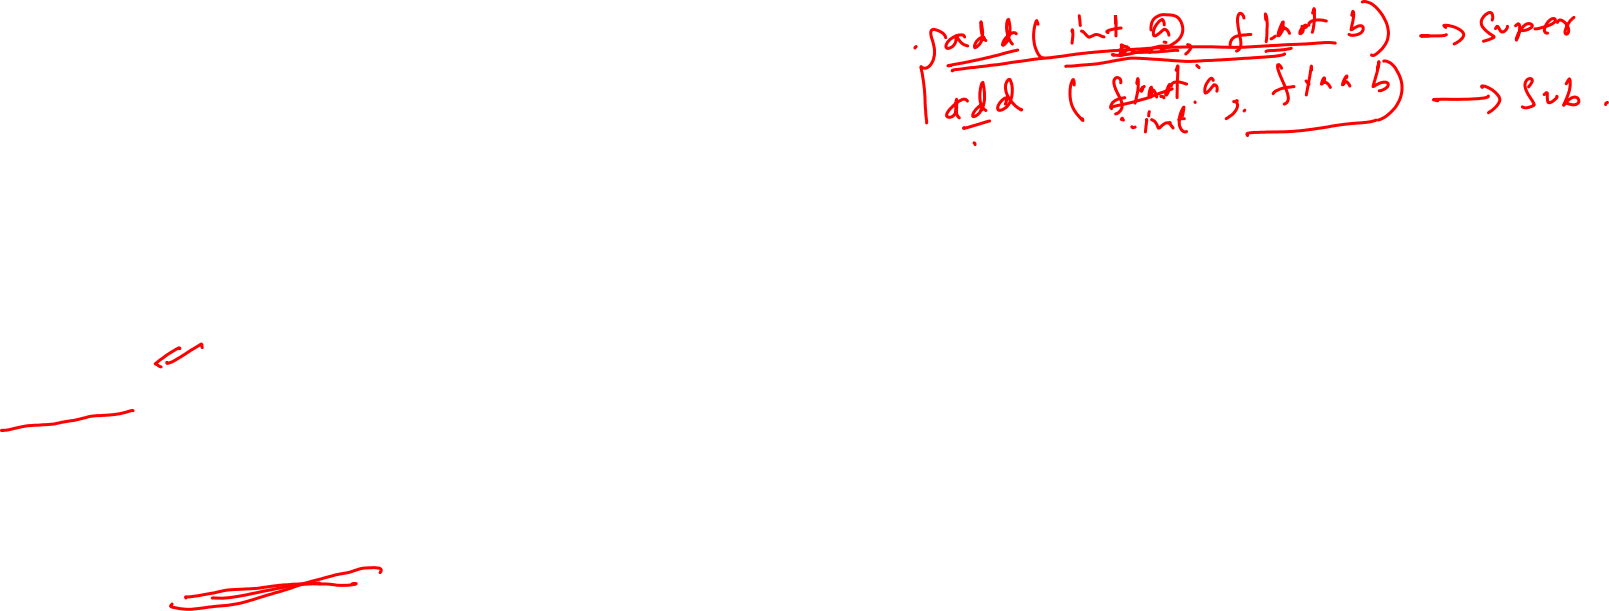 add( int a, float b) → Super
add ( float a, floa b) → Sub.
int